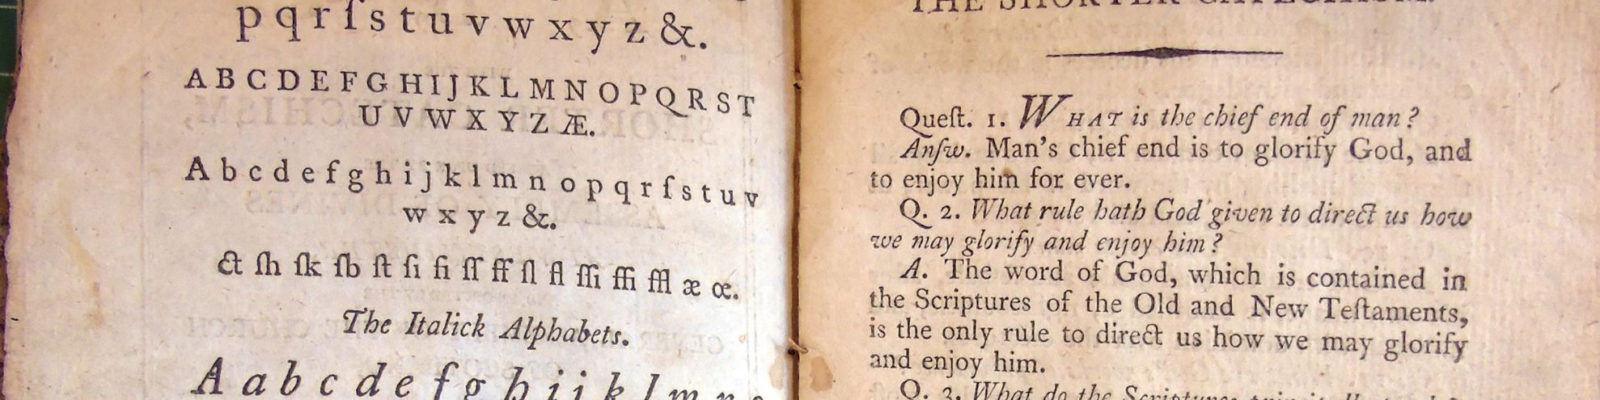 p q r ſ s t u v w x y z &.
A B C D E F G H I J K L M N O P Q R S T
U V W X Y Z Æ.
A b c d e f g h i j k l m n o p q r ſ s t u v
w x y z &.
ct ſh ſk ſb ſt ſi fi ſſ ff ſl fl ſſi ffi ffl æ œ.
The Italick Alphabets.
A a b c d e f g h i j k l m n o
THE SHORTER CATECHISM.
Queſt. 1. WHAT is the chief end of man?
Anſw. Man's chief end is to glorify God, and
to enjoy him for ever.
Q. 2. What rule hath God given to direct us how
we may glorify and enjoy him?
A. The word of God, which is contained in
the Scriptures of the Old and New Teſtaments,
is the only rule to direct us how we may glorify
and enjoy him.
Q. 3. What do the Scriptures principally teach?